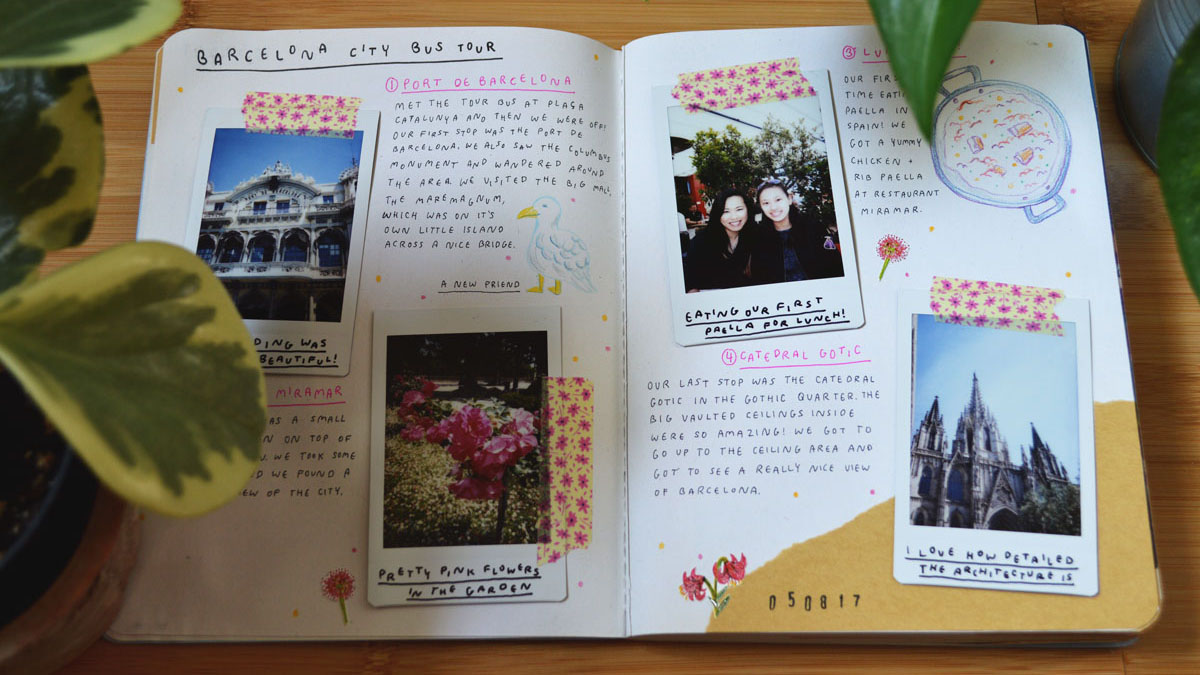 BARCELONA CITY BUS TOUR
① PORT DE BARCELONA
MET THE TOUR BUS AT PLAÇA
CATALUNYA AND THEN WE WERE OFF!
OUR FIRST STOP WAS THE PORT DE
BARCELONA. WE ALSO SAW THE COLUMBUS
MONUMENT AND WANDERED AROUND
THE AREA. WE VISITED THE BIG MALL,
THE MAREMAGNUM,
WHICH WAS ON IT'S
OWN LITTLE ISLAND
ACROSS A NICE BRIDGE.
A NEW FRIEND
WAS
BEAUTIFUL!
MIRAMAR
A SMALL
ON TOP OF
WE TOOK SOME
WE FOUND A
OF THE CITY.
PRETTY PINK FLOWERS
IN THE GARDEN
③
OUR
TIME
PAELLA IN
SPAIN! WE
GOT A YUMMY
CHICKEN +
RIB PAELLA
AT RESTAURANT
MIRAMAR.
EATING OUR FIRST
PAELLA FOR LUNCH!
④ CATEDRAL GOTIC
OUR LAST STOP WAS THE CATEDRAL
GOTIC IN THE GOTHIC QUARTER. THE
BIG VAULTED CEILINGS INSIDE
WERE SO AMAZING! WE GOT TO
GO UP TO THE CEILING AREA AND
GOT TO SEE A REALLY NICE VIEW
OF BARCELONA.
I LOVE HOW DETAILED
THE ARCHITECTURE IS
050817